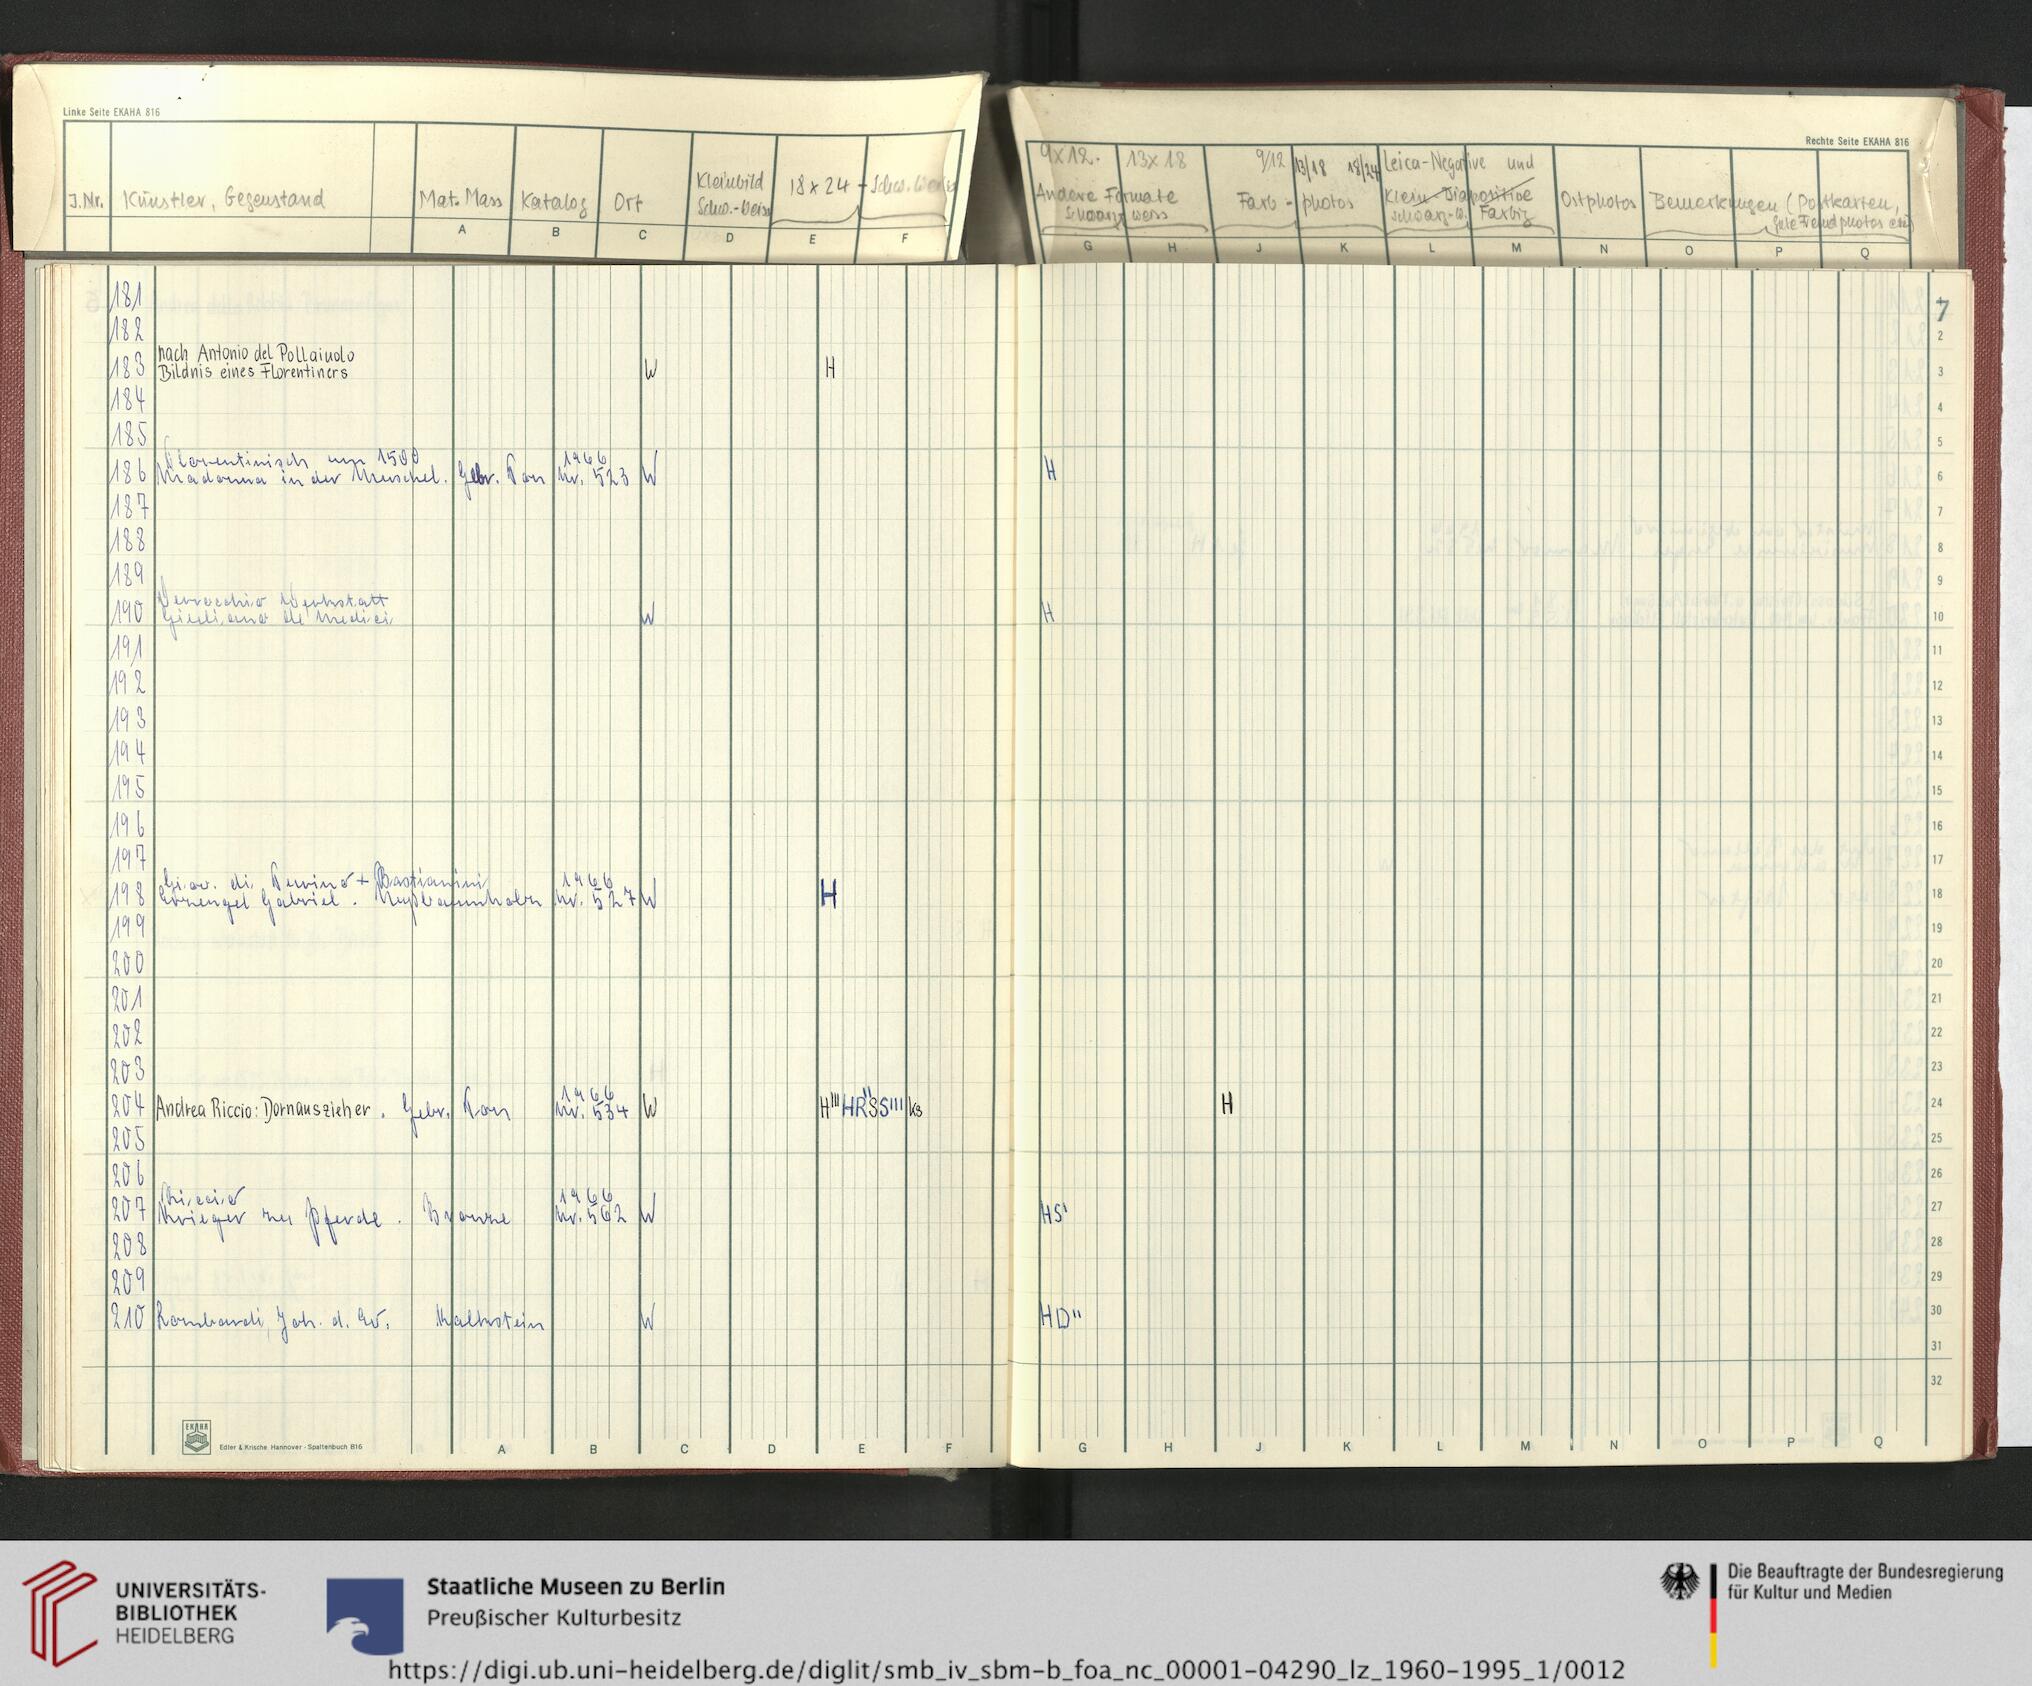 Linke Seite EKAHA 816
J.Nr. Künstler, Gegenstand Mat. Mass Katalog Ort Kleinbild Schw.-Weiss 18x24 - Schw. Weiss
A B C D E F
Rechte Seite EKAHA 816
9x12. 13x18 9/12 13/18 18/24 Leica-Negative und
Andere Formate Farb - photos Klein-Diapositive Ostphotos Bemerkungen (Postkarten,
schwarz weiss schwarz-w. Farbig gute Fremdphotos etc)
G H J K L M N O P Q
181 7
182 2
nach Antonio del Pollaiuolo
183 Bildnis eines Florentiners W H 3
184 4
185 5
Florentinisch um 1500 1966
186 Madonna in der Muschel. Gebr. Ton Nr. 523 W H 6
187 7
188 8
189 9
Verrocchio Werkstatt
190 Giuliano de Medici W H 10
191 11
192 12
193 13
194 14
195 15
196 16
197 17
Giov. di Turino + Bastianini 1966
198 Erzengel Gabriel. Nußbaumholz Nr. 527 W H 18
199 19
200 20
201 21
202 22
203 23
1966
204 Andrea Riccio: Dornauszieher. Gebr. Ton Nr. 534 W H''' HR''SS''' ks H 24
205 25
206 26
Riccio 1966
207 Krieger zu Pferde. Bronze Nr. 562 W HS' 27
208 28
209 29
210 Lombardi, Joh. d. Ev. Kalkstein W HD'' 30
31
32
EKAHA
Edler & Krische Hannover · Spaltenbuch 816
A B C D E F
G H J K L M N O P Q
UNIVERSITÄTS-
BIBLIOTHEK
HEIDELBERG
Staatliche Museen zu Berlin
Preußischer Kulturbesitz
Die Beauftragte der Bundesregierung
für Kultur und Medien
https://digi.ub.uni-heidelberg.de/diglit/smb_iv_sbm-b_foa_nc_00001-04290_lz_1960-1995_1/0012